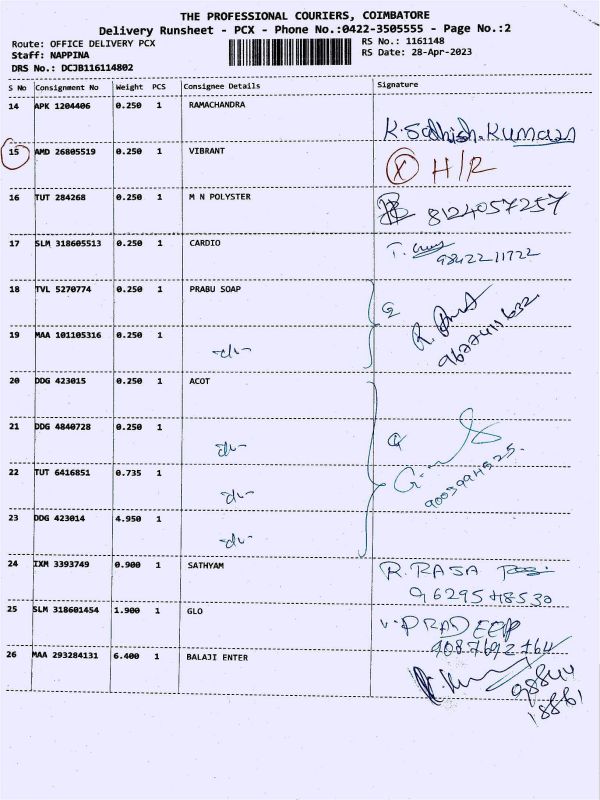 THE PROFESSIONAL COURIERS, COIMBATORE
Delivery Runsheet - PCX - Phone No.:0422-3505555 - Page No.:2
Route: OFFICE DELIVERY PCX RS No.: 1161148
Staff: NAPPINA RS Date: 28-Apr-2023
DRS No.: DCJB116114802
S No Consignment No Weight PCS Consignee Details Signature
14 APK 1204406 0.250 1 RAMACHANDRA
K. Sathish. Kumaran
15 AMD 26805519 0.250 1 VIBRANT
X H/R
16 TUT 284268 0.250 1 M N POLYSTER
8124057257
17 SLM 318605513 0.250 1 CARDIO
9842211722
18 TVL 5270774 0.250 1 PRABU SOAP
19 MAA 101105316 0.250 1
20 DDG 423015 0.250 1 ACOT
21 DDG 4840728 0.250 1
22 TUT 6416851 0.735 1
23 DDG 423014 4.950 1
24 IXM 3393749 0.900 1 SATHYAM
R. RAJA
9629548530
25 SLM 318601454 1.900 1 GLO
V. PRADEEP
26 MAA 293284131 6.400 1 BALAJI ENTER